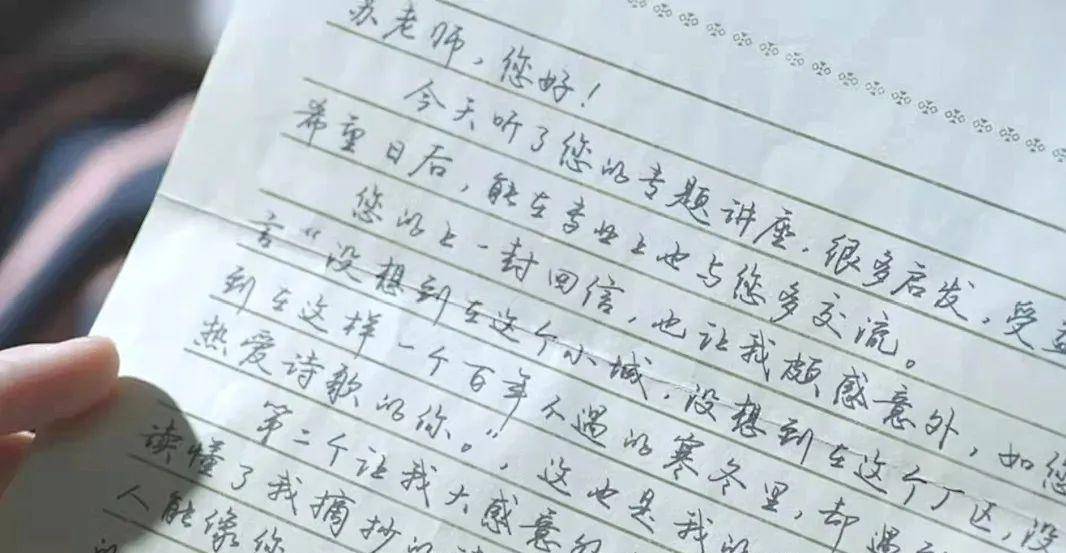 苏老师，您好！
今天听了您的专题讲座，很多启发，受益
希望日后，能在专业上也与您多交流。
您的上一封回信，也让我颇感意外，如您
言“没想到在这个小城，没想到在这个厂区，没
到在这样一个百年不遇的寒冬里，却遇
热爱诗歌的你。”，这也是我的
第二个让我大感意外
读懂了我摘抄的
人能像您
的